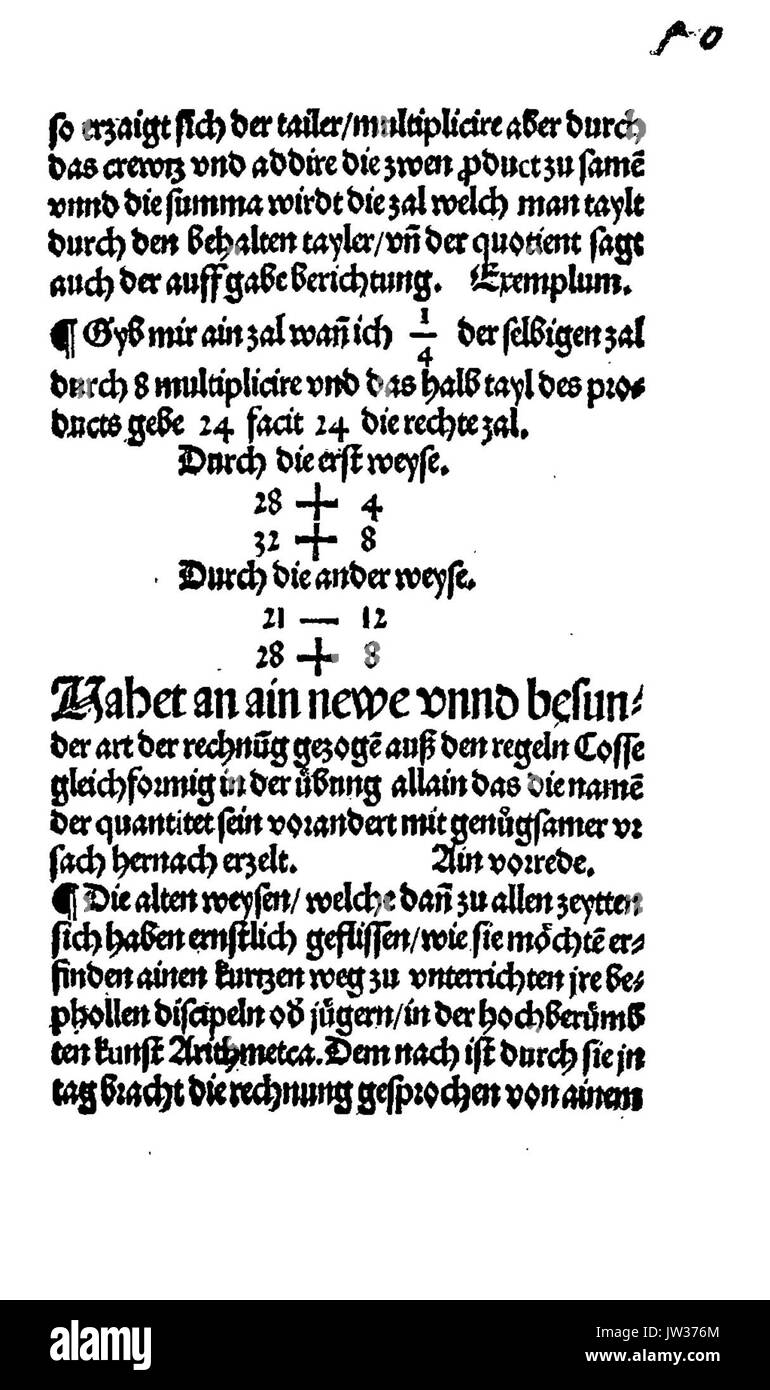 50
so erzaigt sich der tailer/multiplicire aber durch
das crewtz vnd addire die zwen ꝓduct zu samē
vnnd die summa wirdt die zal welch man taylt
durch den behalten tayler/vn̄ der quotient sagt
auch der auffgabe berichtung. Exemplum.
¶ Gyb mir ain zal wan̄ ich 1/4 der selbigen zal
durch 8 multiplicire vnd das halb tayl des pro⸗
ducts gebe 24 facit 24 die rechte zal.
Durch die erst weyse.
28 + 4
32 + 8
Durch die ander weyse.
21 — 12
28 + 8
Hahet an ain newe vnnd besun⸗
der art der rechnūg gezogē auß den regeln Cosse
gleichformig in der übung allain das die namē
der quantitet sein vorandert mit genůgsamer vr
sach hernach erzelt. Ain vorrede.
¶ Die alten weysen/ welche dan̄ zu allen zeytten
sich haben ernstlich geflissen/wie sie möchtē er⸗
finden ainen kurtzen weg zu vnterrichten jre be⸗
phollen discipeln od̛ jūgern/in der hochberümb
ten kunst Arithmetca. Dem nach ist durch sie jn
tag bracht die rechnung gesprochen von ainem
alamy
Image ID: JW376M
www.alamy.com